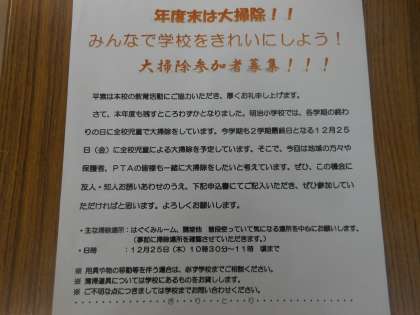 年度末は大掃除!!
みんなで学校をきれいにしよう!
大掃除参加者募集!!!
平素は本校の教育活動にご協力いただき、厚くお礼申し上げます。
さて、本年度も残すところわずかとなりました。明治小学校では、各学期の終わ
りの日に全校児童で大掃除をしています。今学期も2学期最終日となる12月25
日(金)に全校児童による大掃除を予定しています。そこで、今回は地域の方々や
保護者、PTAの皆様も一緒に大掃除をしたいと考えています。ぜひ、この機会に
友人・知人お誘いあわせのうえ、下記申込書にてご記入いただき、ぜひ参加してい
ただければと思います。よろしくお願いします。
・主な掃除場所:はぐくみルーム、図書館他 普段使っていて気になる場所を中心にお願いします。
(事前に掃除場所を確認させていただきます。)
・日時 :12月25日(木)10時30分~11時 頃まで
※ 用具や物の移動等を伴う場合は、必ず学校までご相談ください。
※ 清掃道具については学校にあるものをお貸しします。
※ ご不明な点につきましては学校までお問い合わせください。
き り と り